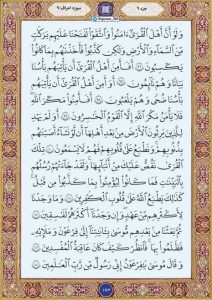 جزء ۹
سوره اعراف ۷
وَلَوْ أَنَّ أَهْلَ الْقُرَىٰ ءَامَنُوا وَاتَّقَوْا لَفَتَحْنَا عَلَيْهِم بَرَكَٰتٍ
مِّنَ السَّمَاءِ وَالْأَرْضِ وَلَٰكِن كَذَّبُوا فَأَخَذْنَٰهُم بِمَا كَانُوا
يَكْسِبُونَ ﴿٩٦﴾ أَفَأَمِنَ أَهْلُ الْقُرَىٰ أَن يَأْتِيَهُم بَأْسُنَا
بَيَٰتًا وَهُمْ نَائِمُونَ ﴿٩٧﴾ أَوَأَمِنَ أَهْلُ الْقُرَىٰ أَن يَأْتِيَهُم
بَأْسُنَا ضُحًى وَهُمْ يَلْعَبُونَ ﴿٩٨﴾ أَفَأَمِنُوا مَكْرَ اللَّهِ
فَلَا يَأْمَنُ مَكْرَ اللَّهِ إِلَّا الْقَوْمُ الْخَٰسِرُونَ ﴿٩٩﴾ أَوَلَمْ يَهْدِ
لِلَّذِينَ يَرِثُونَ الْأَرْضَ مِن بَعْدِ أَهْلِهَا أَن لَّوْ نَشَاءُ أَصَبْنَٰهُم
بِذُنُوبِهِمْ وَنَطْبَعُ عَلَىٰ قُلُوبِهِمْ فَهُمْ لَا يَسْمَعُونَ ﴿١٠٠﴾ تِلْكَ
الْقُرَىٰ نَقُصُّ عَلَيْكَ مِنْ أَنبَائِهَا وَلَقَدْ جَاءَتْهُمْ رُسُلُهُم
بِالْبَيِّنَٰتِ فَمَا كَانُوا لِيُؤْمِنُوا بِمَا كَذَّبُوا مِن قَبْلُ
كَذَٰلِكَ يَطْبَعُ اللَّهُ عَلَىٰ قُلُوبِ الْكَٰفِرِينَ ﴿١٠١﴾ وَمَا وَجَدْنَا
لِأَكْثَرِهِم مِّنْ عَهْدٍ وَإِن وَجَدْنَا أَكْثَرَهُمْ لَفَٰسِقِينَ ﴿١٠٢﴾
ثُمَّ بَعَثْنَا مِن بَعْدِهِم مُّوسَىٰ بِـَٔايَٰتِنَا إِلَىٰ فِرْعَوْنَ وَمَلَإِيهِ
فَظَلَمُوا بِهَا فَانظُرْ كَيْفَ كَانَ عَٰقِبَةُ الْمُفْسِدِينَ ﴿١٠٣﴾
وَقَالَ مُوسَىٰ يَٰفِرْعَوْنُ إِنِّي رَسُولٌ مِّن رَّبِّ الْعَٰلَمِينَ ﴿١٠٤﴾
۱۶۳